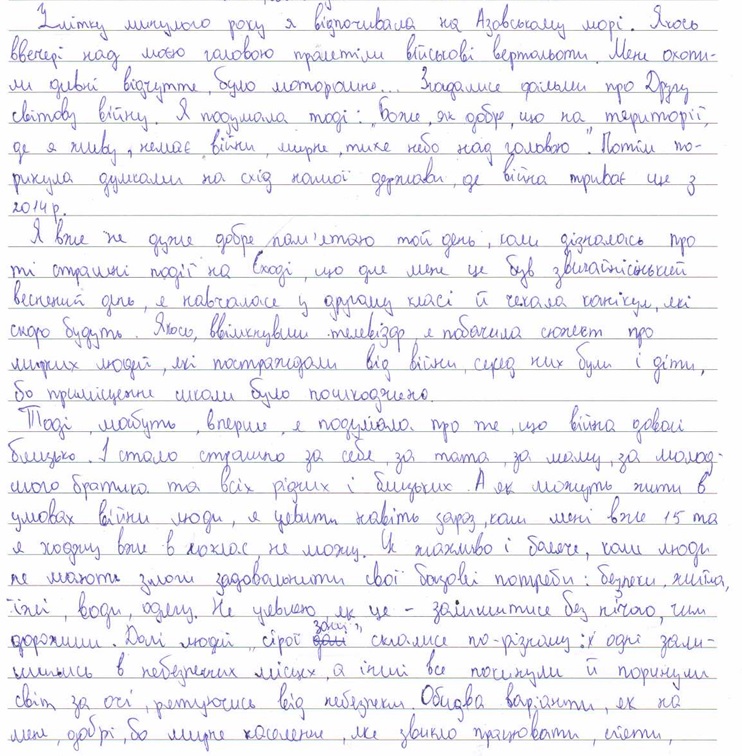 Улітку минулого року я відпочивала на Азовському морі. Якось
ввечері над моєю головою пролетіли військові вертольоти. Мене охопи-
ли дивні відчуття, було моторошно... Згадалися фільми про Другу
світову війну. Я подумала тоді: „Боже, як добре, що на території,
де я живу, немає війни, мирне, тихе небо над головою". Потім по-
ринула думками на схід нашої держави, де війна триває ще з
2014 р.
Я вже не дуже добре пам'ятаю той день, коли дізналась про
ті страшні події на Сході, що для мене це був звичайнісінький
весняний день, я навчалася у другому класі й чекала канікул, які
скоро будуть. Якось, ввімкнувши телевізор, я побачила сюжет про
мирних людей, які постраждали від війни, серед них були і діти,
бо приміщення школи було пошкоджено.
Тоді, мабуть, вперше, я подумала про те, що війна доволі
близько. І стало страшно за себе, за тата, за маму, за молод-
шого братика та всіх рідних і близьких. А як можуть жити в
умовах війни люди, я уявити навіть зараз, коли мені вже 15 та
я ходжу вже в клас, не можу. Це жахливо і боляче, коли люди
не мають змоги задовольнити свої базові потреби: безпеки, житла,
їжі, води, одягу. Не уявляю, як це – залишитися без нічого, чим
дорожили. Долі людей „сірої зони" склалися по-різному: одні зали-
шились в небезпечних місцях, а інші все покинули й поринули
світ за очі, рятуючись від небезпеки. Обидва варіанти, як на
мене, добрі, бо мирне населення, яке звикло працювати, сіяти,